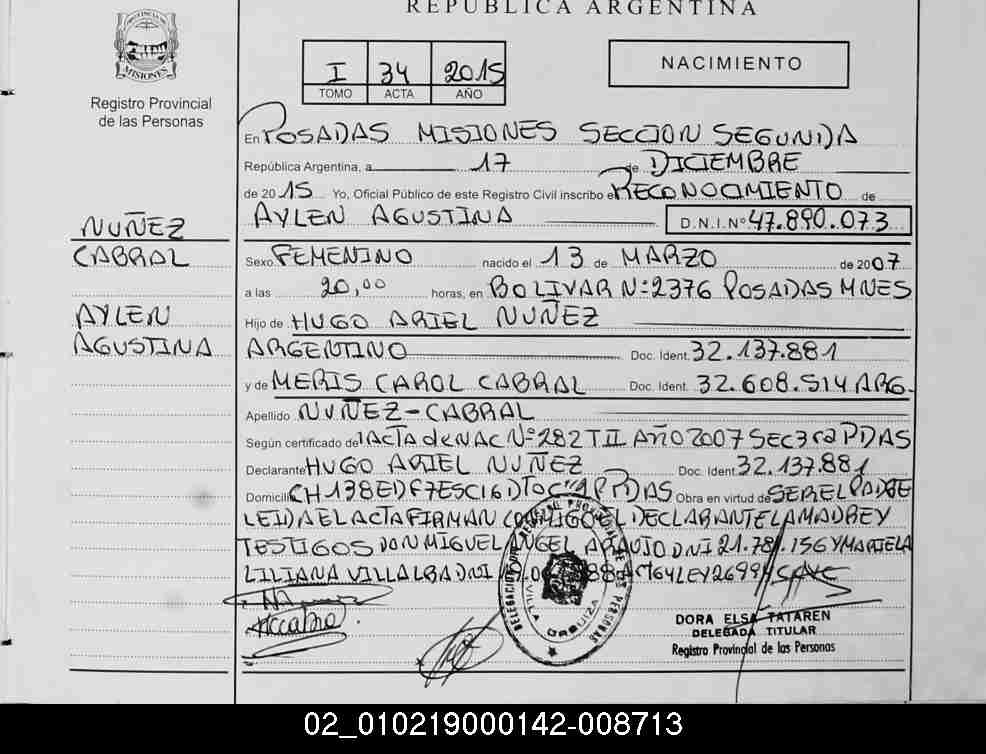 REPUBLICA ARGENTINA
PROVINCIA DE
MISIONES
Registro Provincial
de las Personas
I 34 2015
TOMO ACTA AÑO
NACIMIENTO
En POSADAS MISIONES SECCION SEGUNDA
República Argentina, a 17 de DICIEMBRE
de 2015 Yo, Oficial Público de este Registro Civil inscribo el RECONOCIMIENTO de
AYLEN AGUSTINA D.N.I. Nº 47.890.073
NUÑEZ
CABRAL
AYLEN
AGUSTINA
Sexo FEMENINO nacido el 13 de MARZO de 2007
a las 20,00 horas, en BOLIVAR Nº 2376 POSADAS MNES
Hijo de HUGO ARIEL NUÑEZ
ARGENTINO Doc. Ident. 32.137.881
y de MERIS CAROL CABRAL Doc. Ident. 32.608.514 ARG.
Apellido NUÑEZ-CABRAL
Según certificado de ACTA de NAC Nº 282 T II AÑO 2007 SEC 3ra PDAS
Declarante HUGO ARIEL NUÑEZ Doc. Ident. 32.137.881
Domicilio CH 138 EDF 7 ESC 16 DTO PDAS Obra en virtud de SER EL PADRE
LEIDA EL ACTA FIRMAN CONMIGO EL DECLARANTE LA MADRE Y
TESTIGOS DON MIGUEL ANGEL ARAUJO DNI 21.78 .156 Y MARIELA
LILIANA VILLALBA DNI LEY 2699
DELEGACION DEL REGISTRO PROVINCIAL DE LAS PERSONAS
VILLA URQUIZA
DORA ELSA TATAREN
DELEGADA TITULAR
Registro Provincial de las Personas
02_010219000142-008713